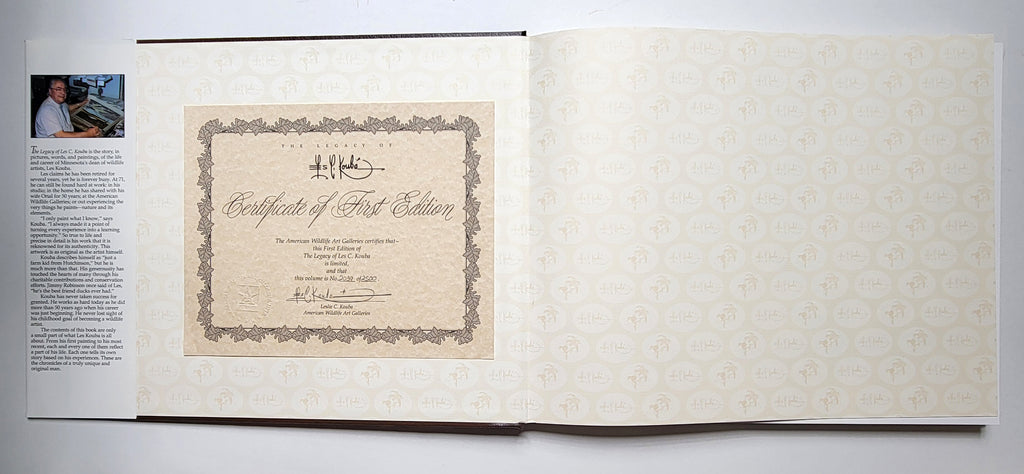 The Legacy of Les C. Kouba is the story, in
pictures, words, and paintings, of the life
and career of Minnesota's dean of wildlife
artists, Les Kouba.
Les claims he has been retired for
several years, yet he is forever busy. At 71,
he can still be found hard at work: in his
studio; in the home he has shared with his
wife Orial for 50 years; at the American
Wildlife Galleries; or out experiencing the
very things he paints—nature and its
elements.
"I only paint what I know," says
Kouba. "I always made it a point of
turning every experience into a learning
opportunity." So true to life and
precise in detail is his work that it is
reknowned for its authenticity. This
artwork is as original as the artist himself.
Kouba describes himself as "just a
farm kid from Hutchinson," but he is
much more than that. His generosity has
touched the hearts of many through his
charitable contributions and conservation
efforts. Jimmy Robinson once said of Les,
"he's the best friend ducks ever had."
Kouba has never taken success for
granted. He works as hard today as he did
more than 50 years ago when his career
was just beginning. He never lost sight of
his childhood goal of becoming a wildlife
artist.
The contents of this book are only
a small part of what Les Kouba is all
about. From his first painting to his most
recent, each and every one of them reflect
a part of his life. Each one tells its own
story based on his experiences. These are
the chronicles of a truly unique and
original man.
THE LEGACY OF
Les C. Kouba
Certificate of First Edition
The American Wildlife Art Galleries certifies that—
this First Edition of
The Legacy of Les C. Kouba
is limited,
and that
this volume is No. of 2500
Les C. Kouba
Leslie C. Kouba
American Wildlife Art Galleries